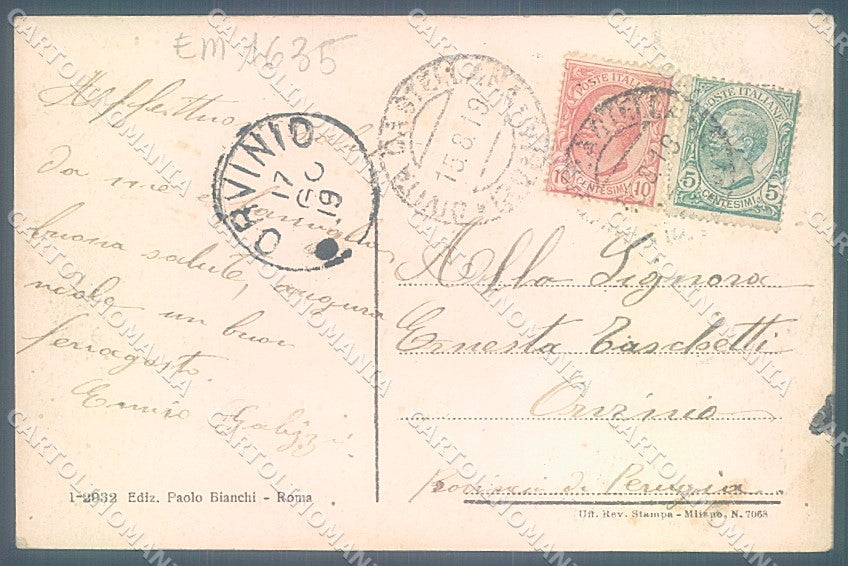 EM 1635
Affettuosi
da me e famiglia
buona salute, augura
ndole un buon
ferragosto.
ORVINIO
17
19
15.8.19
POSTE ITALIANE
10 CENTESIMI 10
POSTE ITALIANE
5 CENTESIMI 5
Alla Signora
Ernesta Taschetti
Orvinio
Provincia di Perugia
1-2932 Ediz. Paolo Bianchi - Roma
Uff. Rev. Stampa - Milano, N. 7068
CARTOLINOMANIA